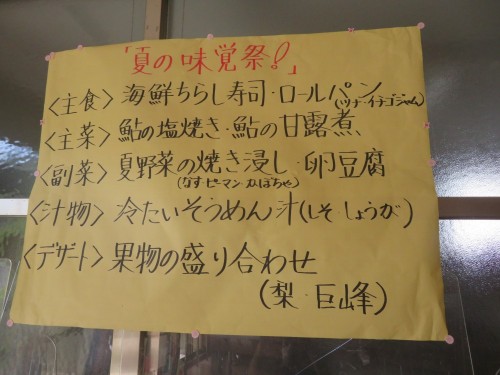 「夏の味覚祭!」
〈主食〉海鮮ちらし寿司・ロールパン
(ツナ・イチゴジャム)
〈主菜〉鮎の塩焼き・鮎の甘露煮
〈副菜〉夏野菜の焼き浸し・卵豆腐
(なす ピーマン かぼちゃ)
〈汁物〉冷たいそうめん汁(しそ・しょうが)
〈デザート〉果物の盛り合わせ
(梨・巨峰)